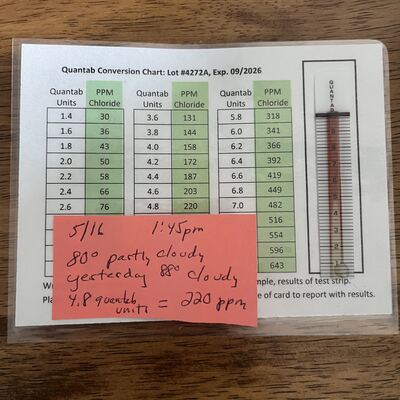 Quantab Conversion Chart: Lot #4272A, Exp. 09/2026
Quantab Units PPM Chloride Quantab Units PPM Chloride Quantab Units PPM Chloride
1.4 30 3.6 131 5.8 318
1.6 36 3.8 144 6.0 341
1.8 43 4.0 158 6.2 366
2.0 50 4.2 172 6.4 392
2.2 58 4.4 187 6.6 419
2.4 66 4.6 203 6.8 449
2.6 76 4.8 220 7.0 482
516
554
596
643
QUANTAB
5/16 1:45pm
80° partly cloudy
yesterday 88° cloudy
4.8 quantab units = 220 ppm
mple, results of test strip.
e of card to report with results.